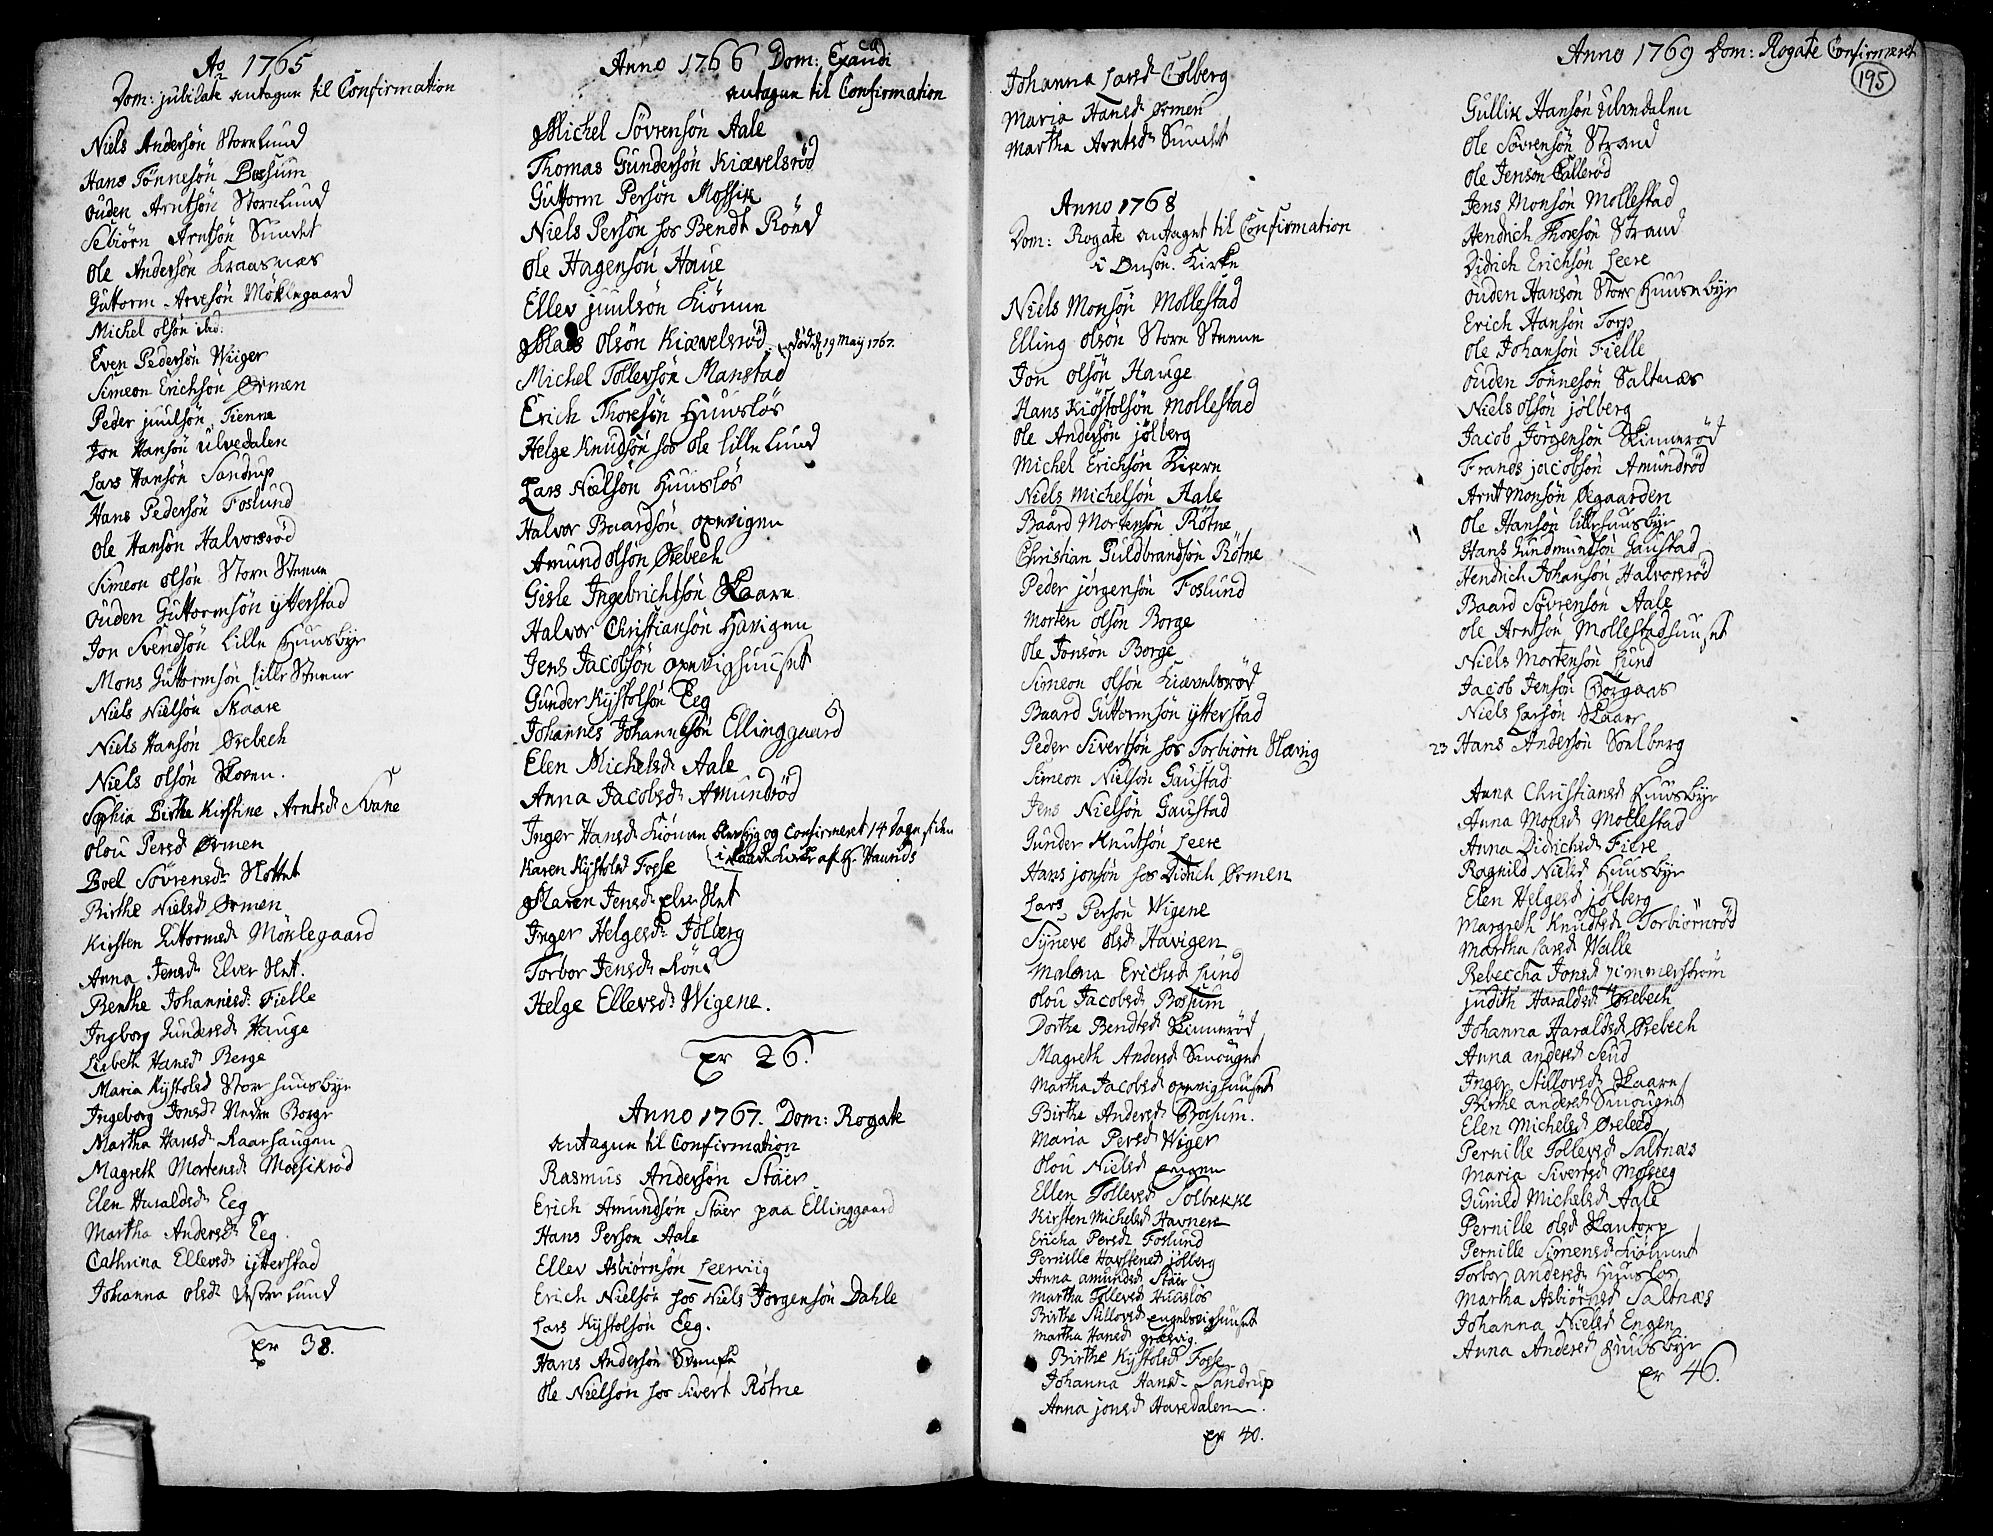 Ao 1765
Dom: jubilate antagne til Confirmation
Niels Andersön Storelund
Hans Tönnesön Bossum
Ouden Arntsön Storelund
Sebiörn Arntsön Sundet
Ole Andersön Kraasnæs
Guttorm Arvesön Möklegaard
Michel olsön ibid:
Even Pedersön Wiiger
Simeon Erichsön Ørmen
Peder juulsön Tienne
Jon Hansön Ulvedalen
Lars Hansön Sandrup
Hans Pedersön Foslund
Ole Hansön Halvorsröd
Simeon olsön Store Steene
Ouden Guttormsön ytterstad
Jon Svendsön Lille Huusbye
Mons Guttormsön lille Steene
Niels Nielsön Skaare
Niels Hansön Ørebech
Niels olsön Skoven.
Sophia Birthe Kirstine Arntsd. Svane
Olou Persd Ørmen
Boel Sövrensdr Slottet
Birthe Nielsd Ørmen
Kirsten Guttormsd Möklegaard
Anna Jensd. Elver Slet.
Benthe Johannisd: Fielle
Ingborg Gundersd. Hauge
Lisbeth Hansd Berge
Maria Kystolsd Store huusbye
Ingeborg Jonsd. Nedre Borge
Martha Hansd. Kaarhaugen
Magreth Mortensd Mossikröd
Elen Haraldsd. Eeg
Martha Andersd. Eeg.
Cathrina Ellevsd ytterstad
Johanna olsd. Vestre Lund
er 38.
Anno 1766 Dom: Exaudi
antagne til Confirmation
Michel Sövrensön Aale
Thomas Gundersön Kiævelsröd
Guttorm Persön Mossik
Niels Persön hos Bendt Rönd
Ole Hagensön Haue
Ellev juulsön Kiönne
Mads Olsön Kiævelsröd död d. 19 Maij 1767.
Michel Tollevsön Manstad
Erich Thoresön Huuslös
Helge Knudsön hos ole lille Lund
Lars Nielsön Huuslös
Halvor Baardsön opevigen
Amund olsön Ørebech
Gisle Ingebrichtsön Skaare
Halvor Christiansön Havigen
Jens Jacobsön opevighuuset
Gunder Kystolsön Eeg
Johannes Johannesön Ellinggaard
Elen Michelsd. Aale
Anna Jacobsd. Amundröd
Inger Hansd. Kiönne og Confirmeret 14 dage siden
Karen Kystolsd Fosse i Raade Kirke af H
Maren Jensd. elve Slet
Inger Helgesd. Jölberg
Torbor Jensd. Rönd
Helge Ellevsd. Wigene.
er 26.
Anno 1767. Dom: Rogate
antagne til Confirmation
Rasmus Andersön Stäer
Erich Amundsön Stäer paa Ellinggaard
Hans Person Aale
Ellev Asbiörnsön Leerviig
Erich Nielsön hos Niels Jörgensön Dahle
Lars Kystolsön Eeg.
Hans Andersön Steene
Ole Nielsön hos Sivert Rötne
Johanna Larsd. Colberg
Maria Hansd. Ørmen
Martha Arntsd. Sundet
Anno 1768
Dom: Rogate antaget til Confirmation
i Onsøe Kirke
Niels Monsön Mollestad
Elling olsön Store Steene
Jon olsön Hauge
Hans Kiöstolsön Mollestad
Ole Andersön jölberg
Michel Erichsön Kiære
Niels Michelsön Aale
Baard Mortensön Rötne
Christian Guldbrandsön Rötne
Peder jörgensön Foslund
Morten olsön Borge
Ole Jonsön Borge
Simeon olsön Kiævelsröd
Baard Guttormsön ytterstad
Peder Sivertsön hos Torbiörn Slævig
Simeon Nielsön Gaustad
Jens Nielsön Gaustad
Gunder Knutsön Leere
Hans jonsön hos Didrich Ørmen
Lars Persön Wigene
Syneve olsd. Havigen
Malena Erichsd Lund
Olou Jacobsd. Bossum
Dorthe Bendtsd. Skinneröd
Magreth Andersd Smouget
Martha Jacobsd. opevighuuset
Birthe Andersd. Bossum.
Maria Persd. Wiger
Olou Nielsd Engen
Ellen Tollevsd Solbrekke
Kirsten Michelsd Havnen
Ericha Persd. Foslund
Pernille Havstensd jölberg
Anna amundsd. Stäer
Martha Tollevsd Huuslös
Birthe Stillovsd. engelsvighuuset
Martha Hansd grævig
Birthe Kystolsd Fosse
Johanna Hansd. Sandrup
Anna jonsd. Haredalen.
er 40.
Anno 1769 Dom: Rogate Confirmeret
195
Gullik Hansön Ulvedalen
Ole Sövrensön Strand
Ole Jensön Galleröd
Jens Monsön Mollestad
Hendrich Thoresön Strand
Didrich Erichsön Leere
Ouden Hansön Store Huusebye
Erich Hansön Torp
Ole Johansön Fielle
Ouden Tönnesön Saltnæs
Niels olsön jölberg
Jacob Jörgensön Skinneröd
Frands jacobsön Amundröd
Arnt Monsön Øegaarden
Ole Hansön lille huusbye
Hans Gundmundsön Gaustad
Hendrich Johansön Halvorsröd
Baard Sövrensön Aale
Ole Arntsön Mollestadhuuset
Niels Mortensön Lund
Jacob Jensön Borgaas
Niels Larsön Skaare
23 Hans Andersön Soelberg
Anna Christiansd Huusbye
Anna Monsd. Mollestad
Anna Didrichsd. Fiere
Ragnild Nielsd Huusbye
Elen Helgesd jölberg
Margreth Knudtsd. Torbiörnröd
Martha Larsd Walle
Rebeccha Jonsd Zimmerström
judith Haraldsd. Ørebech
Johanna Haraldsd Ørebech
Anna andersd Seud
Inger Stillovsd. Skaare
Birthe andersd Smouget
Elen Michelsd. Ørebech
Pernille Tollevsd Saltnæs
Maria Sivertsd Moseeg
Gunild Michelsd Aale
Pernille olsd Skantorp
Pernille Simensd Kiölneet
Torbor andersd. Huuslos
Martha Asbiörnsd Saltnæs
Johanna Nielsd Engen
Anna Andersd Huusbye
er 46.